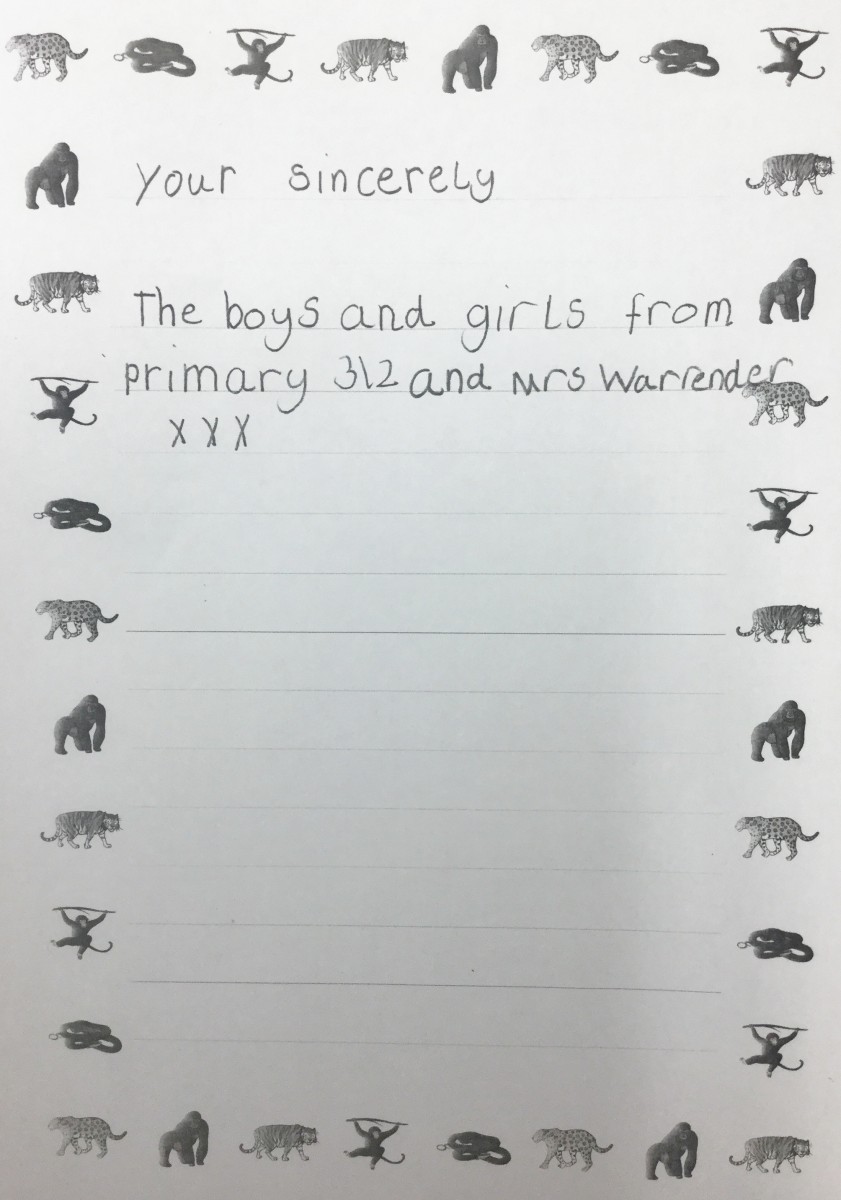 Your sincerely
The boys and girls from
primary 3\2 and Mrs Warrender
X X X